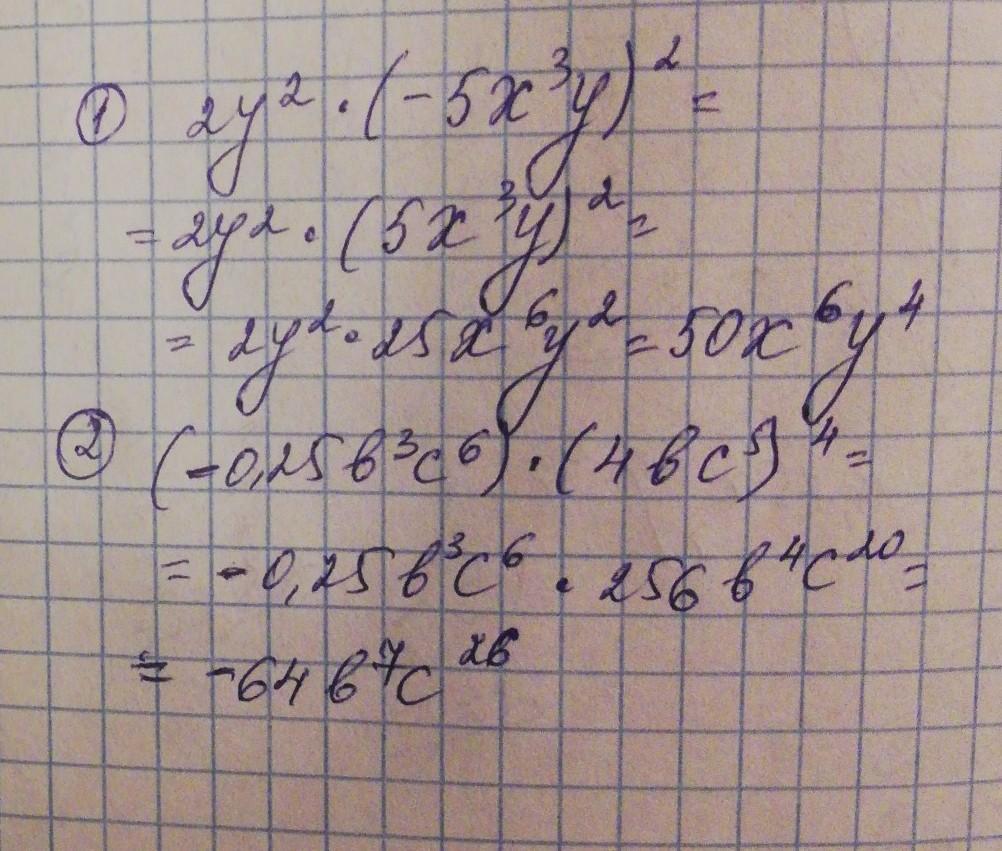 ① 2y² · (-5x³y)² =
= 2y² · (5x³y)² =
= 2y² · 25x⁶y² = 50x⁶y⁴
② (-0,25в³c⁶) · (4вc⁵)⁴ =
= -0,25в³c⁶ · 256в⁴c²⁰ =
= -64в⁷c²⁶